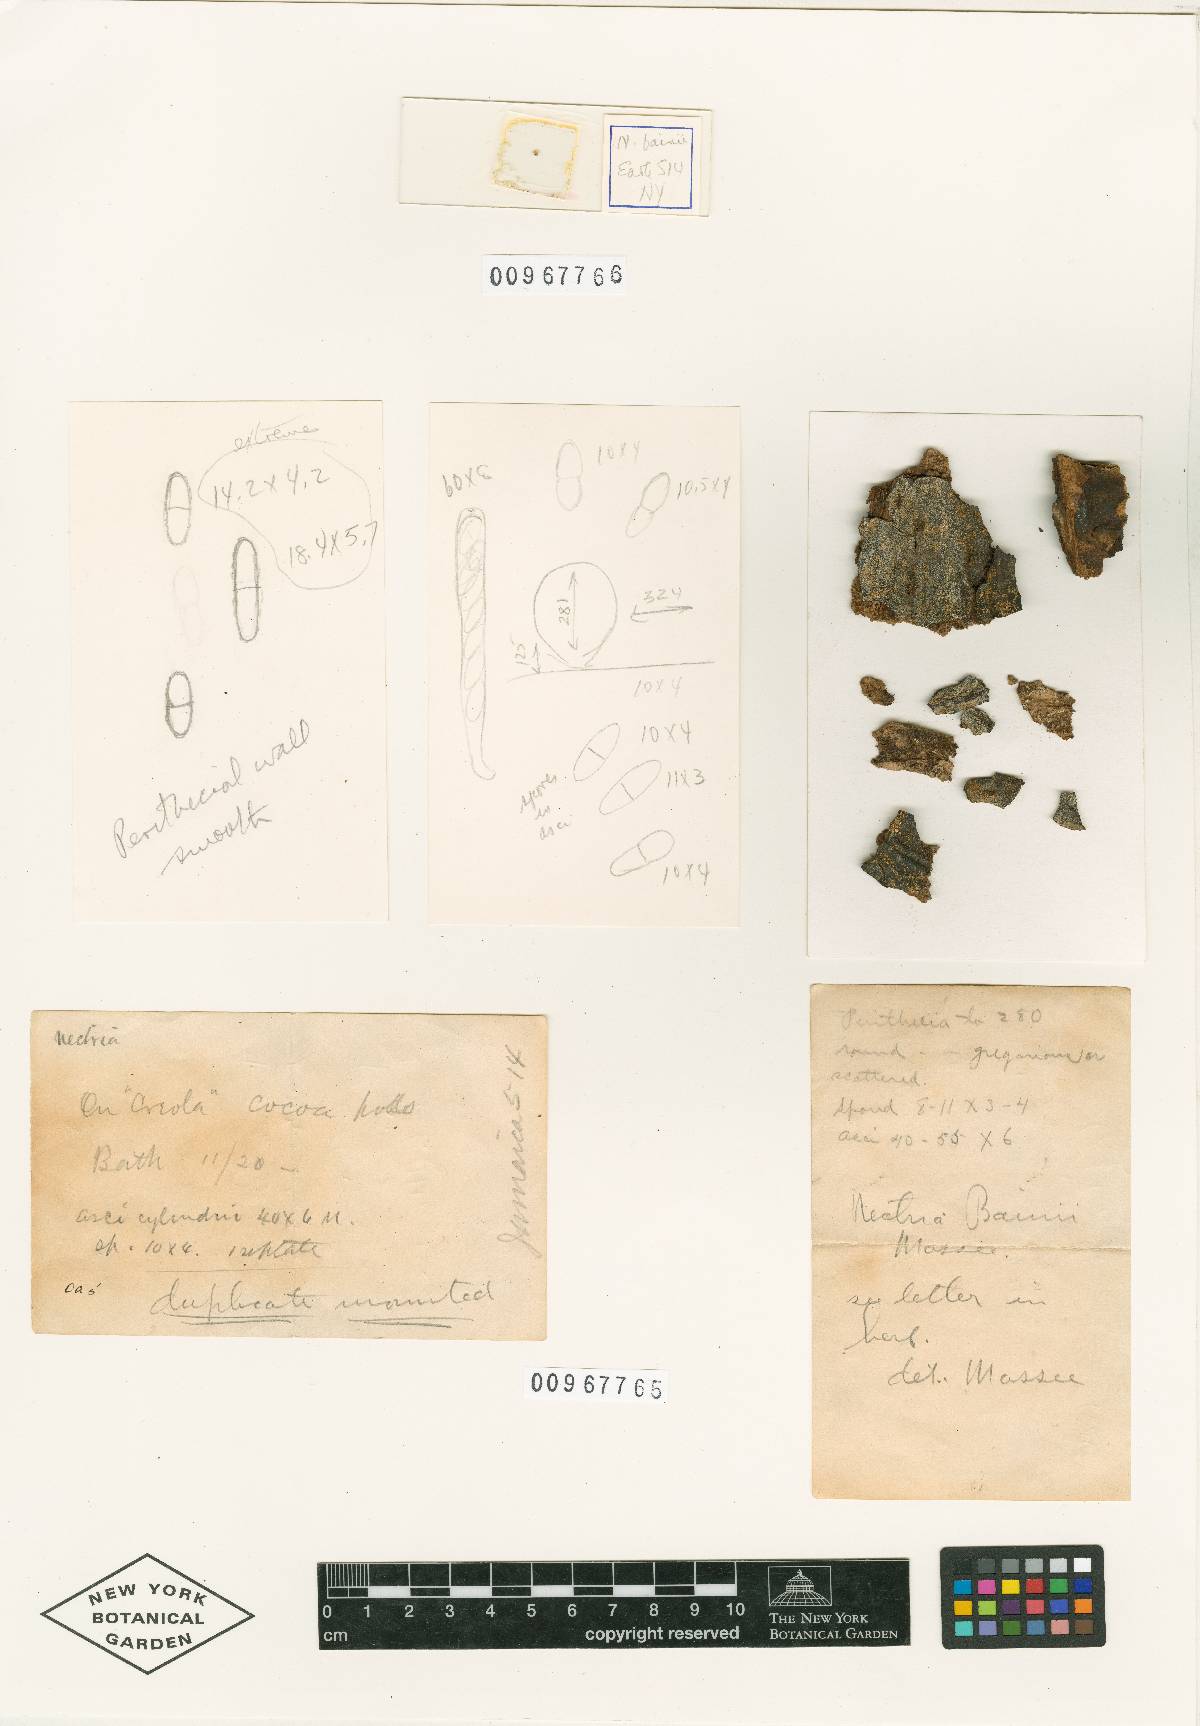 N. bainii
East 514
NY
00967766
extreme
14.2 x 4.2
18.4 x 5.7
Perithecial wall
smooth
60 x 6
10 x 4
10.5 x 4
281
324
125
10 x 4
10 x 4
spores
in
asci
11 x 3
10 x 4
Nectria
On "Creola" cocoa pods
Bath 11/20 -
asci cylindric 40 x 6 M.
sp. 10 x 4. 1 septate
ca 5
duplicate mounted
Jamaica 514
Perithecia to 280
round - gregarious or
scattered.
8-11 x 3-4
asci 40-55 x 6
Nectria Bainii
Massee.
see letter in
herb.
det. Massee
00967765
NEW YORK
BOTANICAL
GARDEN
0 1 2 3 4 5 6 7 8 9 10
cm
copyright reserved
THE NEW YORK
BOTANICAL GARDEN